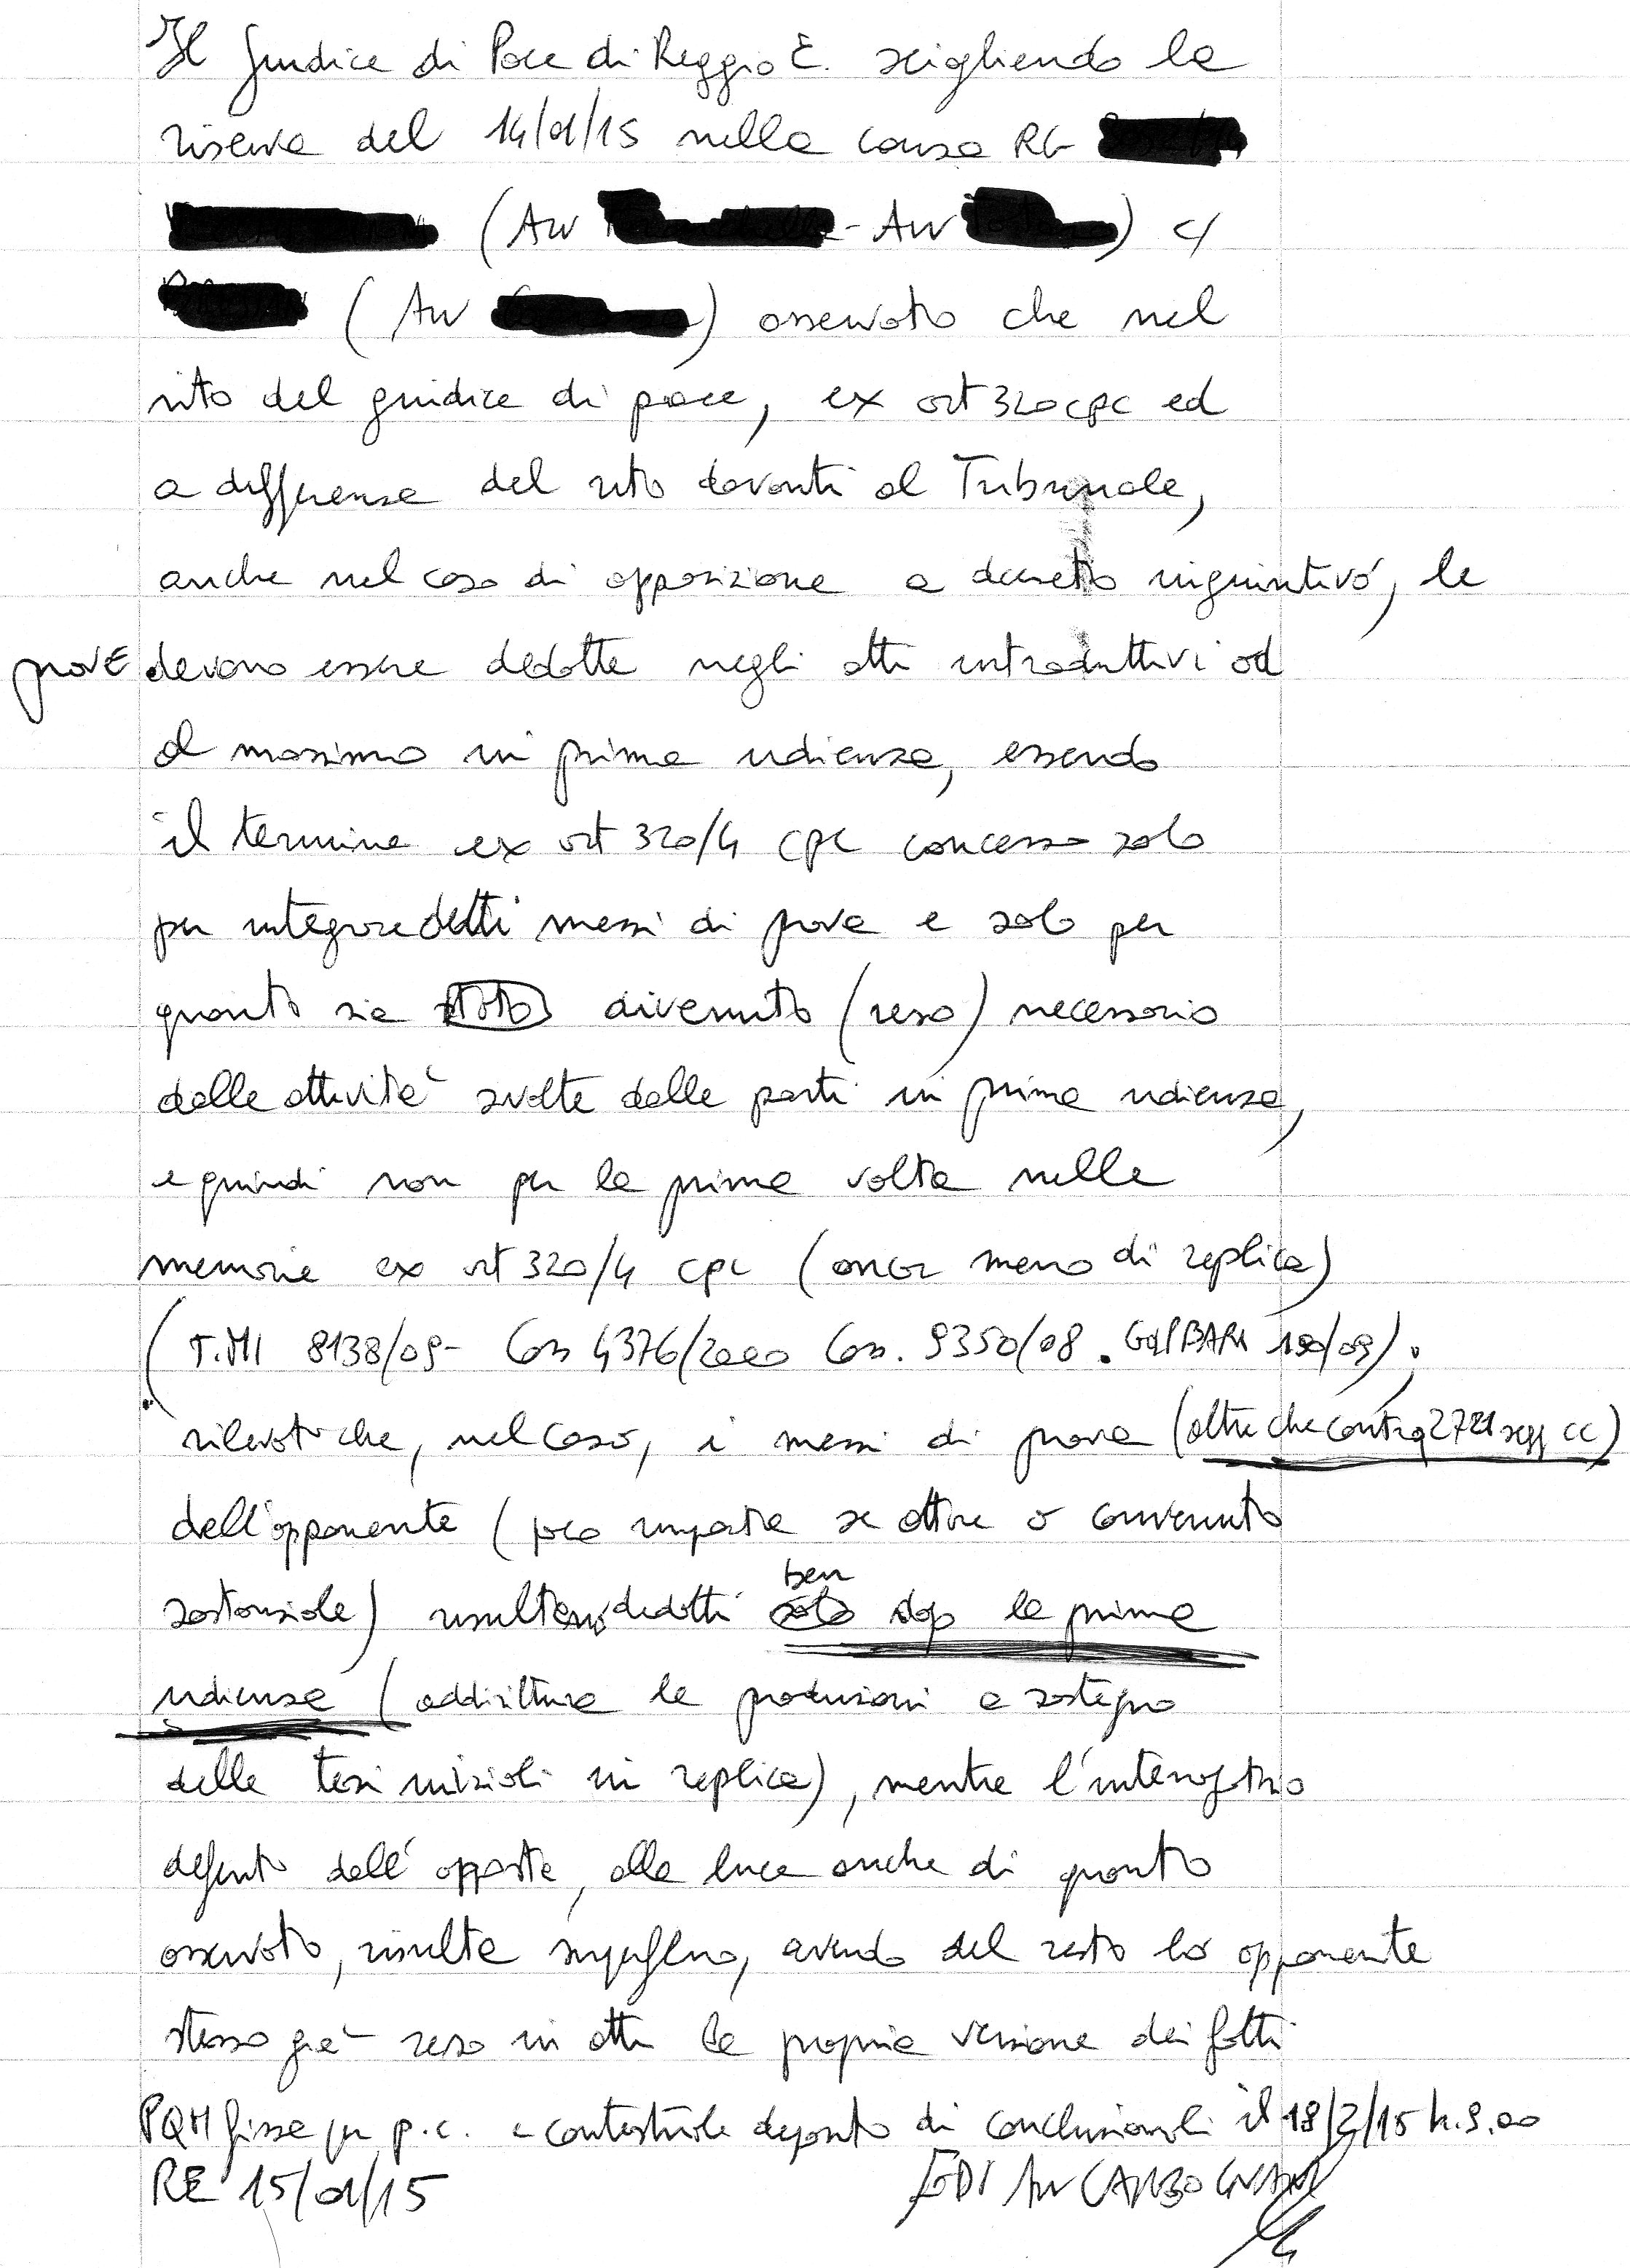 Il Giudice di Pace di Reggio E. sciogliendo la
riserva del 14/01/15 nella causa RG
(Avv - Avv ) c/
(Avv ) osservato che nel
rito del giudice di pace, ex art 320 cpc ed
a differenza del rito davanti al Tribunale,
anche nel caso di opposizione a decreto ingiuntivo, le
prove devono essere dedotte negli atti introduttivi od
al massimo in prima udienza, essendo
il termine ex art 320/4 cpc concesso solo
per integrare detti mezzi di prova e solo per
quanto sia stato divenuto (reso) necessario
dalle attività svolte dalle parti in prima udienza,
e quindi non per la prima volta nelle
memorie ex art 320/4 cpc (ancor meno di replica)
(T.MI 8138/09 - Cass 4376/2000 Cass. 9350/08. GdP BARI 190/09);
rilevato che, nel caso, i mezzi di prova (oltre che contra 2721 segg cc)
dell'opponente (poco importa se attore o convenuto
sostanziale) risultano dedotti ben dop la prima
udienza (addirittura le produzioni a sostegno
delle tesi iniziali in replica), mentre l'interrogatorio
deferito dall'opposta, alla luce anche di quanto
osservato, risulta superfluo, avendo del resto lo opponente
stesso già reso in atti la propria versione dei fatti
PQM fissa per p.c. e contestuale deposito di conclusionali il 18/2/15 h. 9.00
RE 15/01/15
Avv